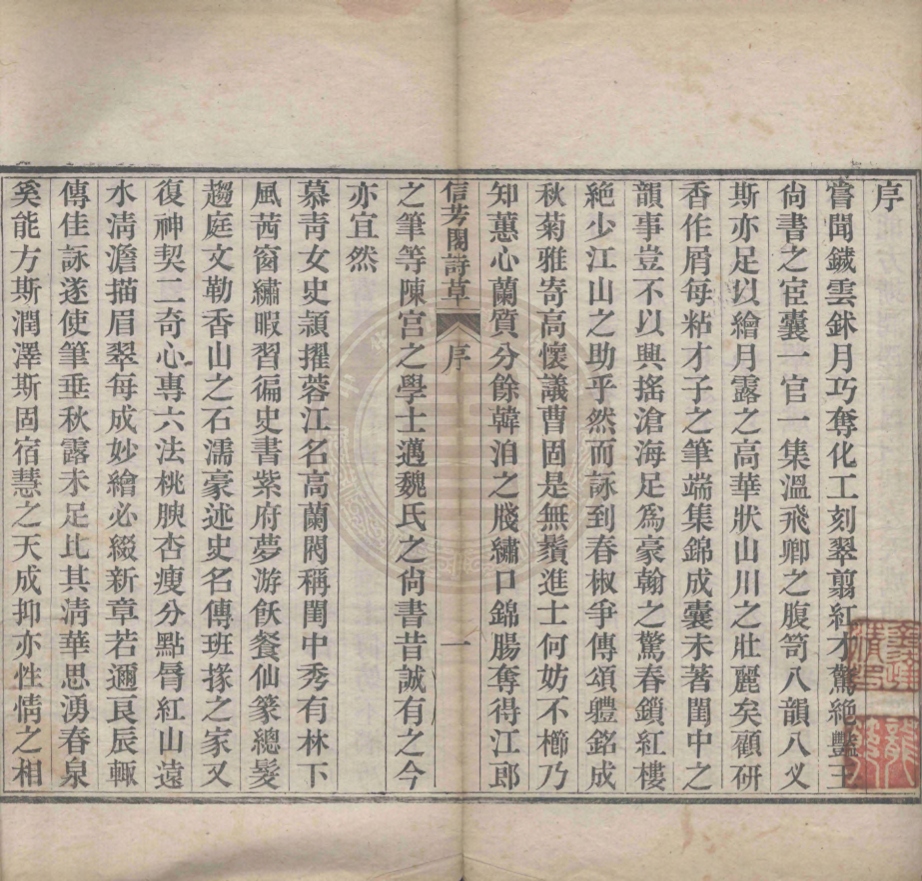 序
嘗聞鏚雲鉥月巧奪化工刻翠翦紅才驚絶豔王
尙書之宦囊一官一集溫飛卿之腹笥八韻八义
斯亦足㠯繪月露之高華狀山川之壯麗矣顧硏
香作屑每粘才子之筆端集錦成囊未著閨中之
韻事豈不以興搖滄海足爲豪翰之驚春鎖紅樓
絶少江山之助乎然而詠到春椒爭傳頌軆銘成
秋菊雅寄高懷議曹固是無鬚進士何妨不櫛乃
知蕙心蘭質分餘韓洎之牋繡口錦腸奪得江郎
信芳閣詩草 序 一
之筆等陳宮之學士邁魏氏之尙書昔誠有之今
亦宜然
慕靑女史頴擢蓉江名高蘭閥稱閨中秀有林下
風茜窗繡暇習徧史書紫府夢游飫餐仙篆總髮
趨庭文勒香山之石濡豪述史名傳班掾之家又
復神契二奇心專六法桃腴杏瘦分點脣紅山遠
水淸澹描眉翠每成妙繪必綴新章若邇良辰輒
傳佳詠遂使筆垂秋露未足比其淸華思湧春泉
奚能方斯潤澤斯固宿慧之天成抑亦性情之相